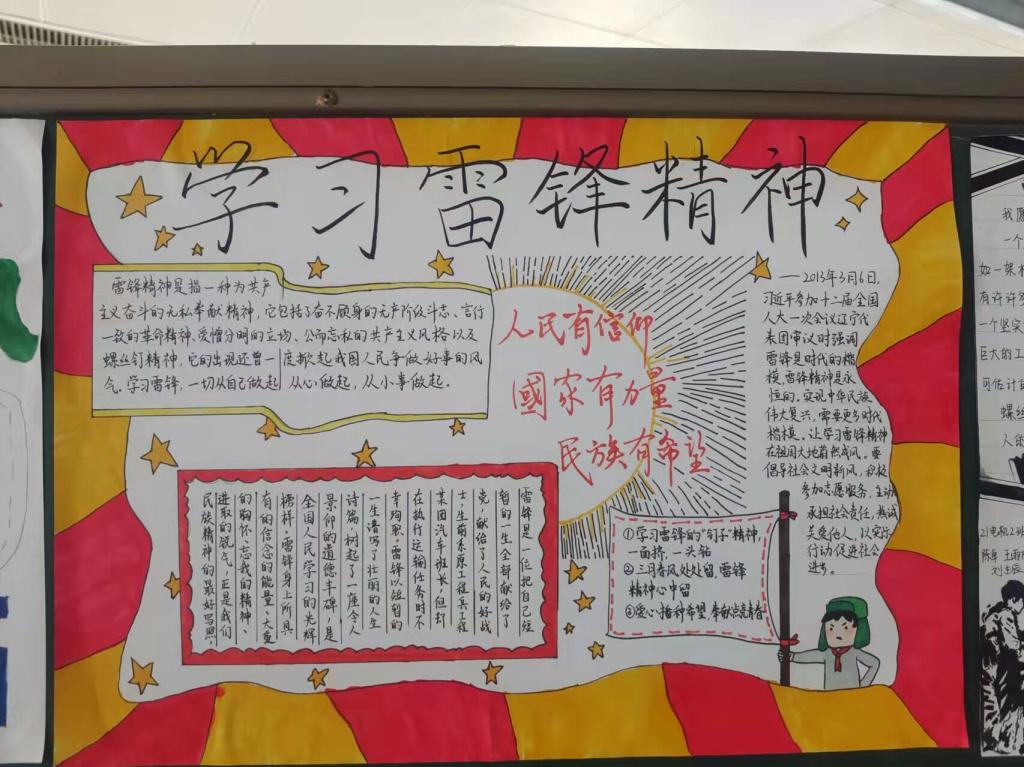 学习雷锋精神
雷锋精神是指一种为共产
主义奋斗的无私奉献精神,它包括了奋不顾身的无产阶级斗志、言行
一致的革命精神、爱憎分明的立场、公而忘私的共产主义风格以及
螺丝钉精神,它的出现还曾一度掀起我国人民争做好事的风
气。学习雷锋,一切从自己做起,从心做起,从小事做起。
人民有信仰
國家有力量
民族有希望
——2013年3月6日,
习近平参加十二届全国
人大一次会议辽宁代
表团审议时强调
雷锋是时代的楷
模,雷锋精神是永
恒的。实现中华民族
伟大复兴,需要更多时代
楷模。让学习雷锋精神
在祖国大地蔚然成风。要
倡导社会文明新风,积极
参加志愿服务,主动
承担社会责任,热诚
关爱他人,以实际
行动促进社会
进步。
雷锋是一位把自己短
暂的一生全部献给了
党,献给了人民的好战
士,生前系原工程兵工程
某团汽车班长,但
在执行运输任务时不
幸殉职。雷锋以短暂的
一生谱写了壮丽的人生
诗篇,树起了一座令人
景仰的道德丰碑,是
全国人民学习的光辉
榜样。雷锋身上所具
有的信念的能量、大爱
的胸怀、忘我的精神、
进取的锐气,正是我们
民族精神的最好写照。
①学习雷锋的"钉子"精神,
一面挤,一头钻
②三月春风处处留,雷锋
精神心中留
③爱心播种希望,奉献点亮青春
我愿
一个
如一架机
有许许
一个坚实
巨大的工
可估计
螺丝
人的